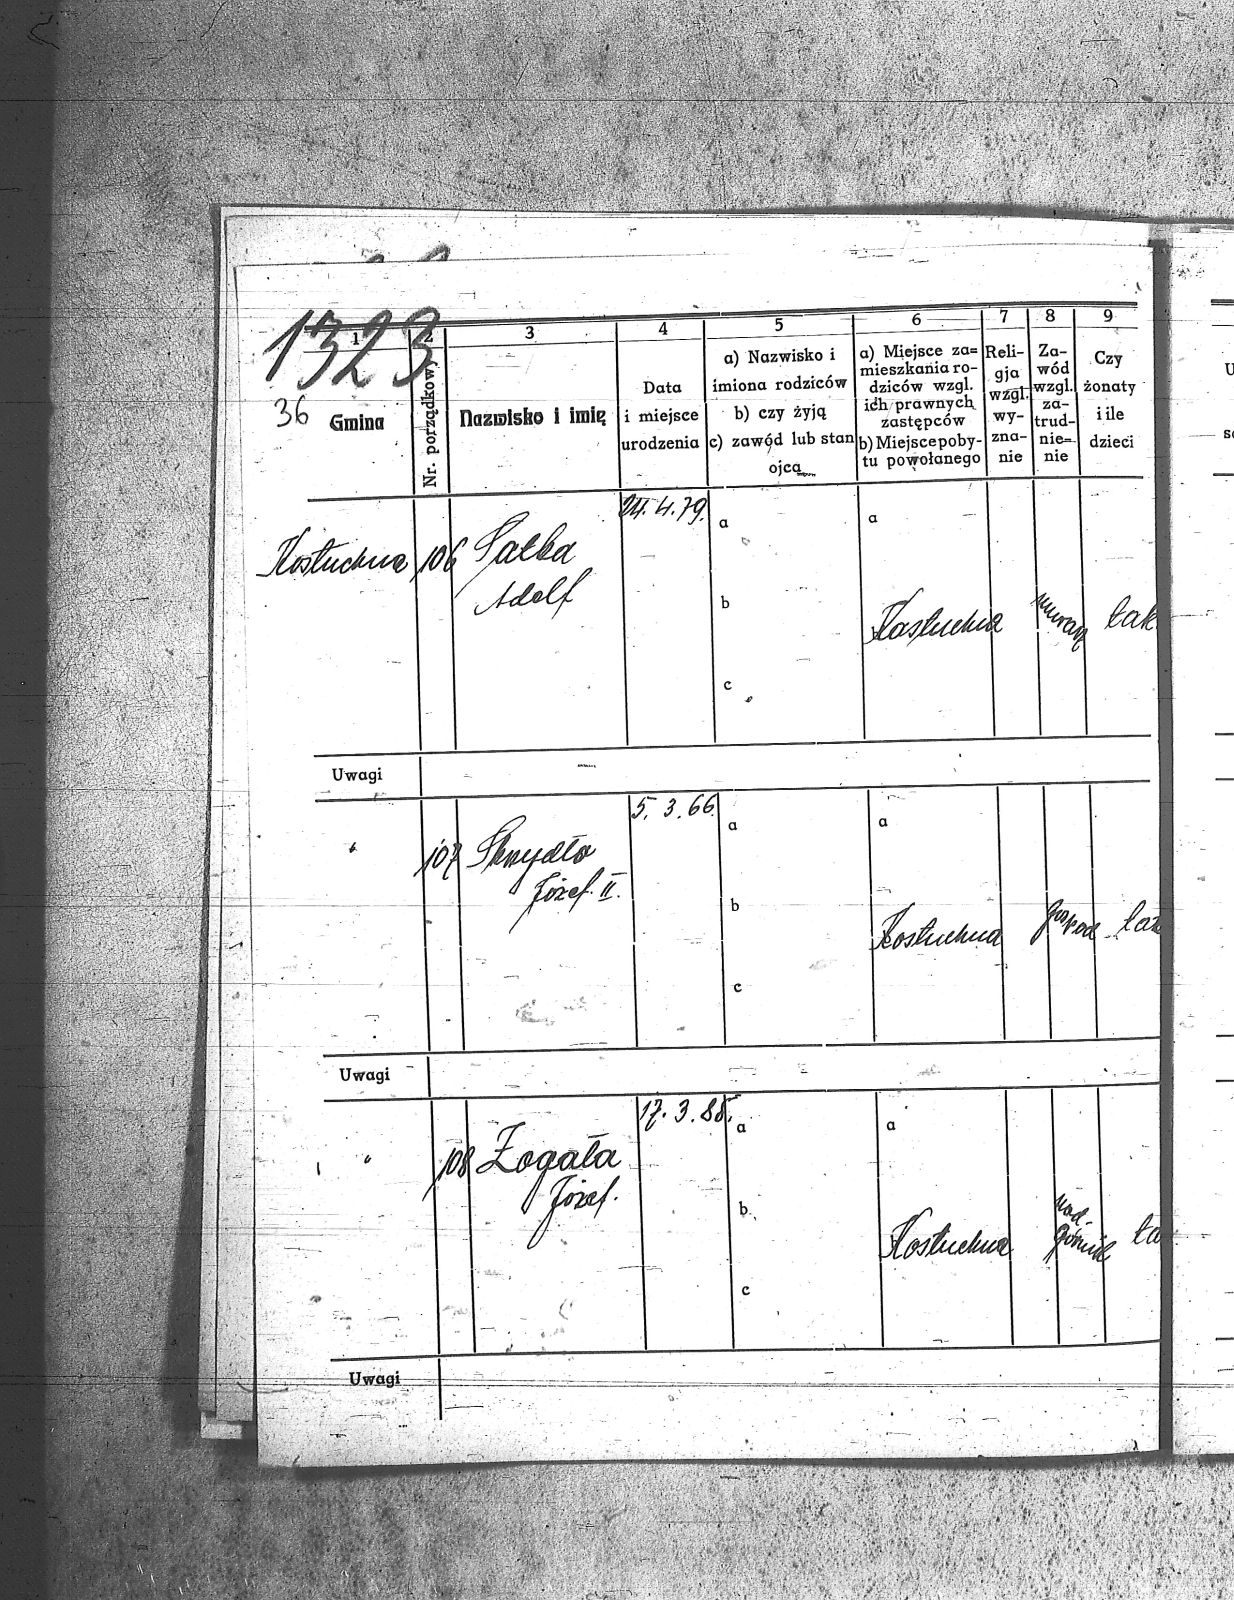 1323
36
1
2
3
4
5
6
7
8
9
Gmina
Nr. porządkowy
Nazwisko i imię
Data
i miejsce
urodzenia
a) Nazwisko i
imiona rodziców
b) czy żyją
c) zawód lub stan
ojca
a) Miejsce za=
mieszkania ro-
dziców wzgl.
ich prawnych
zastępców
b) Miejsce poby-
tu powołanego
Reli-
gja
wzgl.
wy-
zna-
nie
Za-
wód
wzgl.
za-
trud-
nie=
nie
Czy
żonaty
i ile
dzieci
Kostuchna
106
Adolf
24.4.79.
a
b
c
a
Kostuchna
murarz
tak
Uwagi
"
107
Skrzydło
Józef II.
5.3.66.
a
b
c
a
Kostuchna
gospod
tak
Uwagi
"
108
Zogała
Józef.
17.3.85.
a
b.
c
a
Kostuchna
nad-
górnik
ta
Uwagi